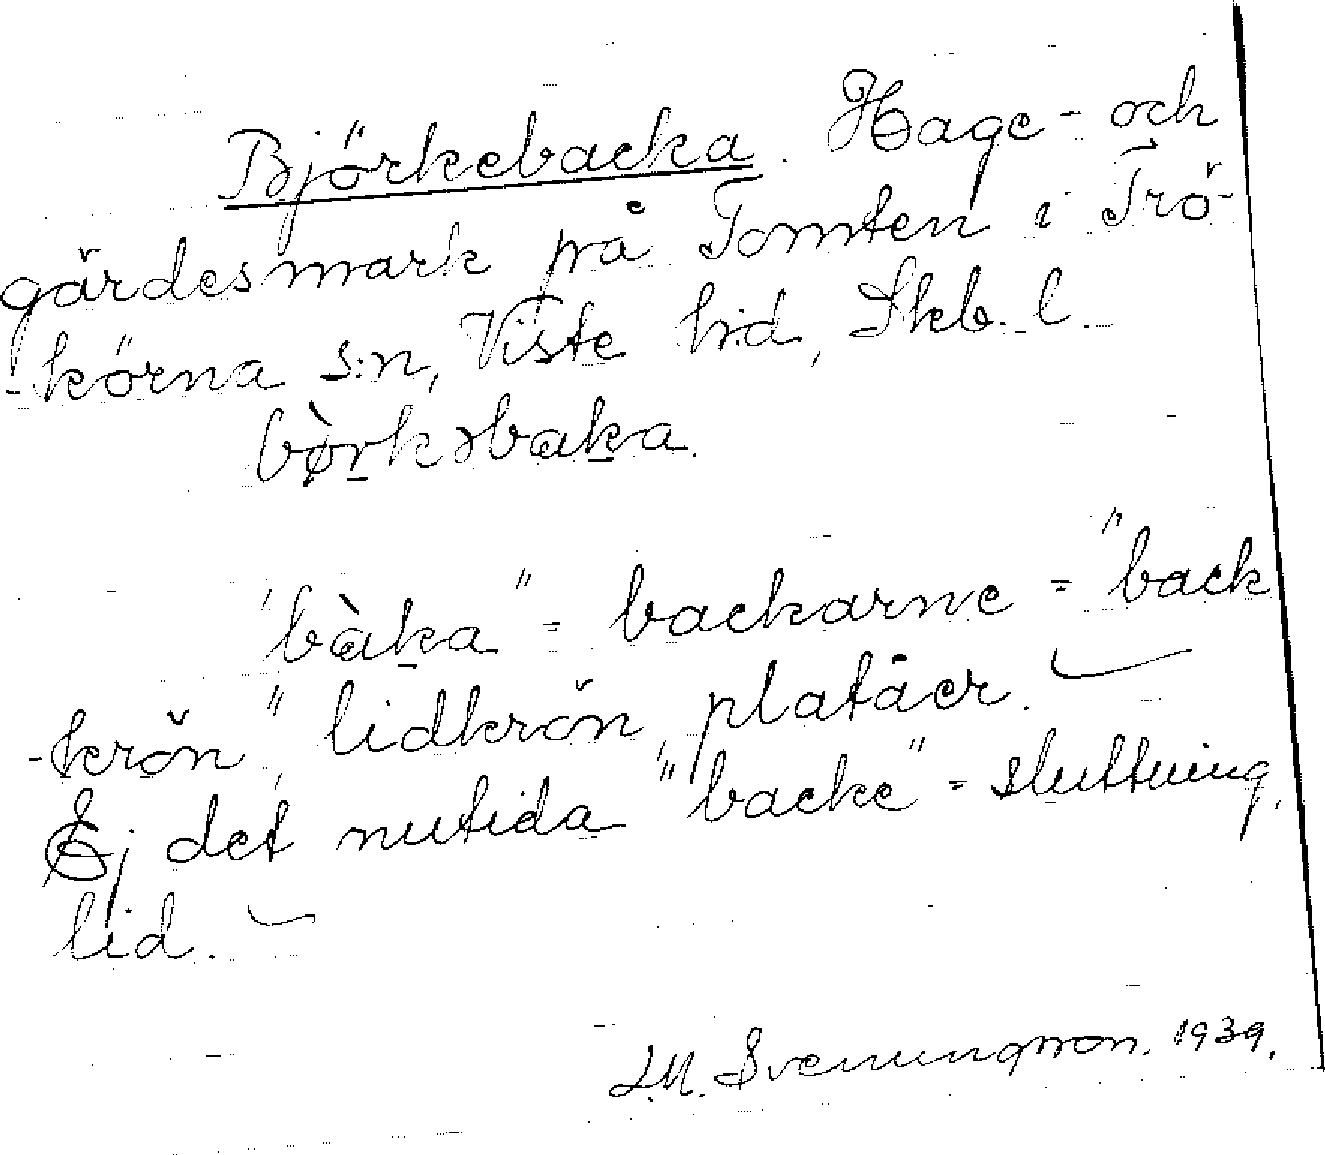 Björkebacka. Hage- och
gärdesmark på Tomten i Trö-
-körna s:n, Viste hd, Skb. l.
bø̀rkəbaka.
"bàka" = backarne = "back
-krön", lidkrön, platåer.
Ej det nutida "backe" = sluttning,
lid.
1939.